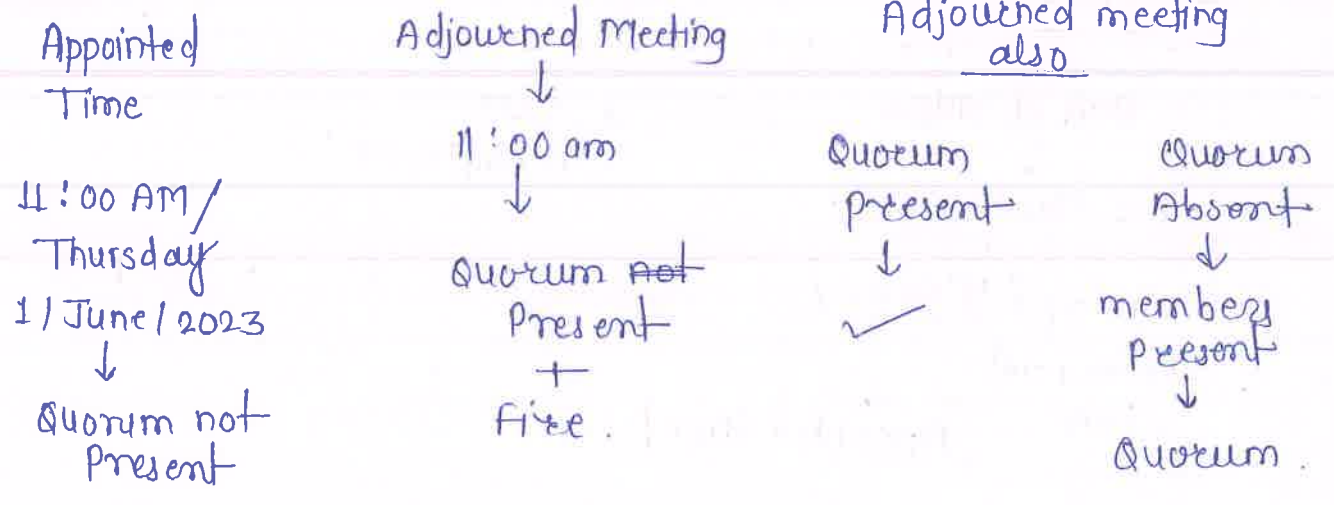 Appointed
Time
11:00 AM /
Thursday
1 / June / 2023
↓
Quorum not
Present
Adjourned Meeting
↓
11:00 am
↓
Quorum ~~not~~
Present
+
Fire.
Adjourned meeting
also
Quorum
Present
↓
✓
Quorum
Absent
↓
members
Present
↓
Quorum.